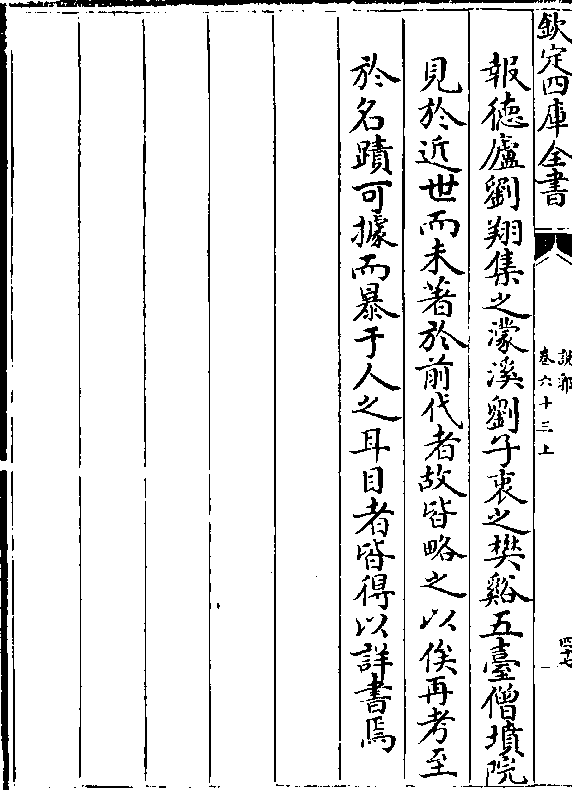 欽定四庫全書
説郛
卷六十三上
四十七
報德廬劉翔集之濛溪劉子衷之樊谿五臺僧墳院
見於近世而未著於前代者故皆略之以俟再考至
於名蹟可據而暴于人之耳目者皆得以詳書焉